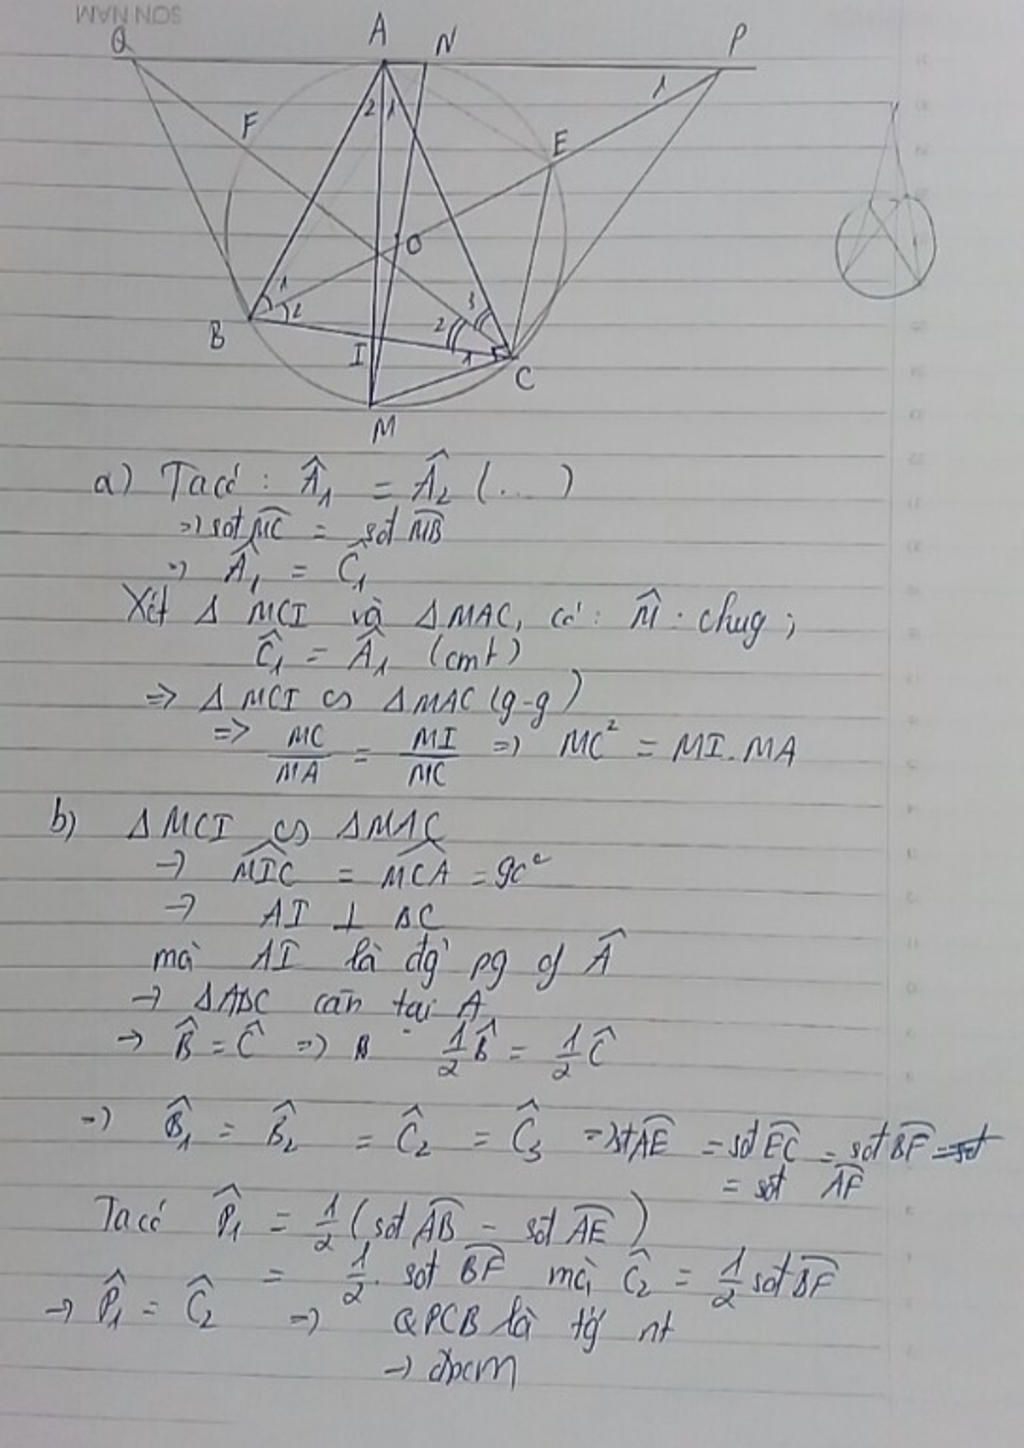 SƠN NAM
Q A N P
2 1 1
F E
O
1 2 B
3 2 1 C
I
M
a) Ta có : Â₁ = Â₂ (...)
=) sđt M͡C = sđt M͡B
=) Â₁ = Ĉ₁
Xét Δ MCI và Δ MAC, có : M̂ : chug ;
Ĉ₁ = Â₁ (cmt)
=> Δ MCI ∽ Δ MAC (g-g)
=> MC/MA = MI/MC =) MC² = MI.MA
b) Δ MCI ∽ Δ MAC
-) M͡IC = M͡CA = 90°
-) AI ⊥ BC
mà AI là đg pg of Â
-) ΔABC cân tại A
-) B̂ = Ĉ =) 1/2 B̂ = 1/2 Ĉ
-) B̂₁ = B̂₂ = Ĉ₂ = Ĉ₃ =) sđt A͡E = sđt E͡C = sđt B͡F
= sđt A͡F
Ta có P̂₁ = 1/2 (sđt A͡B - sđt A͡E)
= 1/2 . sđt B͡F mà, Ĉ₂ = 1/2 sđt B͡F
-) P̂₁ = Ĉ₂ =) QPCB là tg nt
-) đpcm